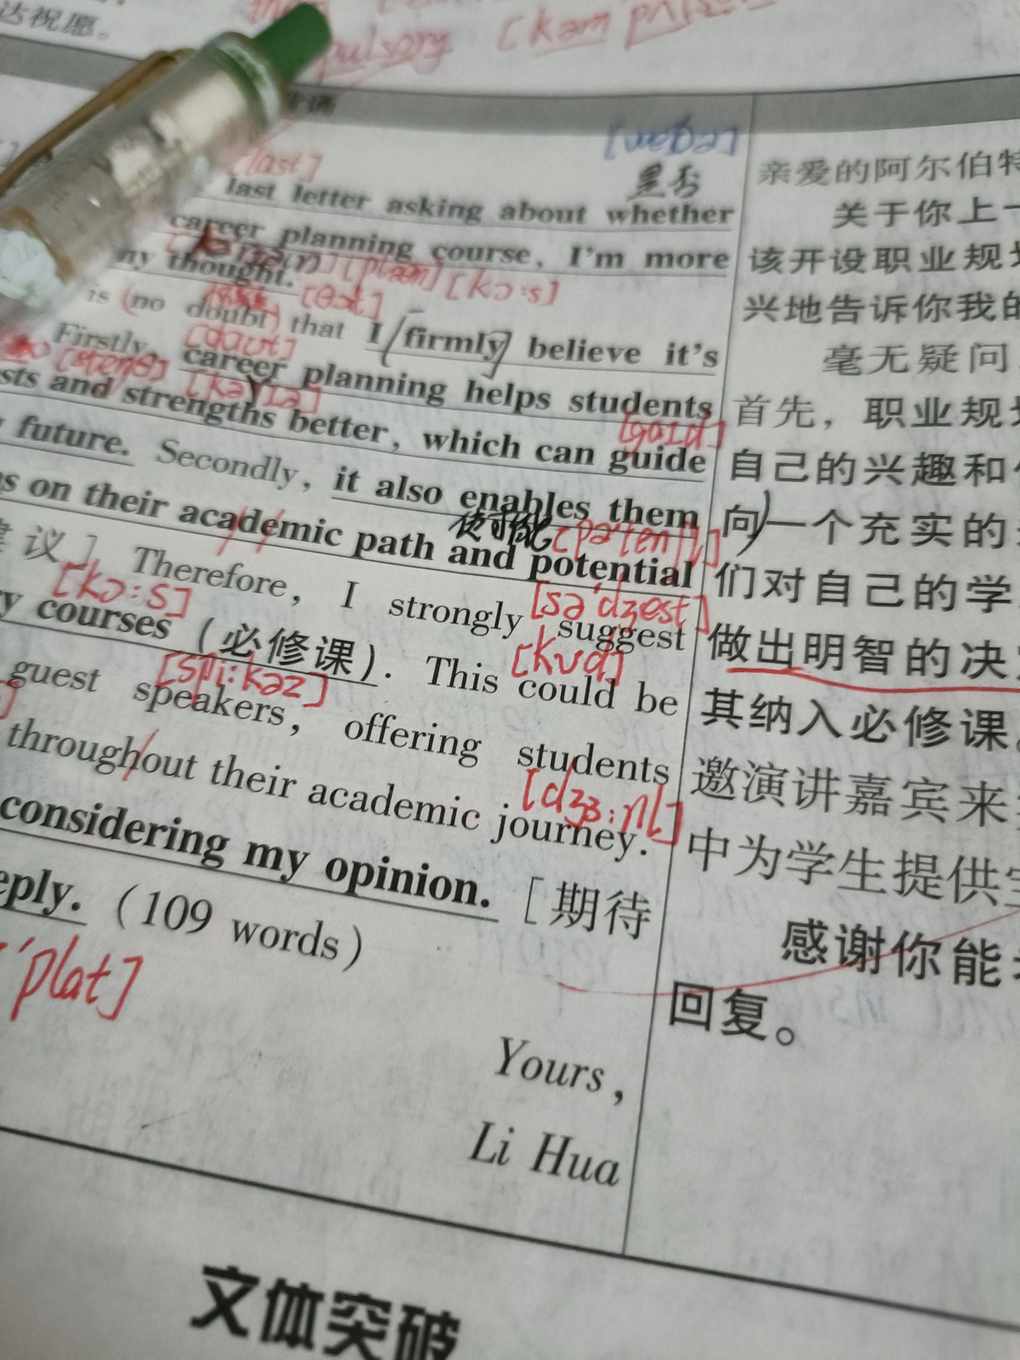 达祝愿。
[kəm
[weðə]
[last] 是否
last letter asking about whether
career planning course, I'm more
my thought.
[plæn] [kɔ:s]
[θɔt]
is (no doubt) that I (firmly) believe it's
[daut]
Firstly, career planning helps students
sts and strengths better, which can guide
[gaɪd]
future. Secondly, it also enables them
使可能
s on their academic path and potential
建议] Therefore, I strongly suggest
[kɔ:s] [sə'dʒest]
y courses (必修课). This could be
[spi:kəz] [kʊd]
guest speakers, offering students
throughout their academic journey.
[dʒɜ:nɪ]
considering my opinion. [期待
eply. (109 words)
'plaɪ]
Yours,
Li Hua
亲爱的阿尔伯特
关于你上一
该开设职业规划
兴地告诉你我的
毫无疑问
首先，职业规划
自己的兴趣和
向一个充实的
们对自己的学
做出明智的决
其纳入必修课。
邀演讲嘉宾来
中为学生提供宝
感谢你能考
回复。
文体突破